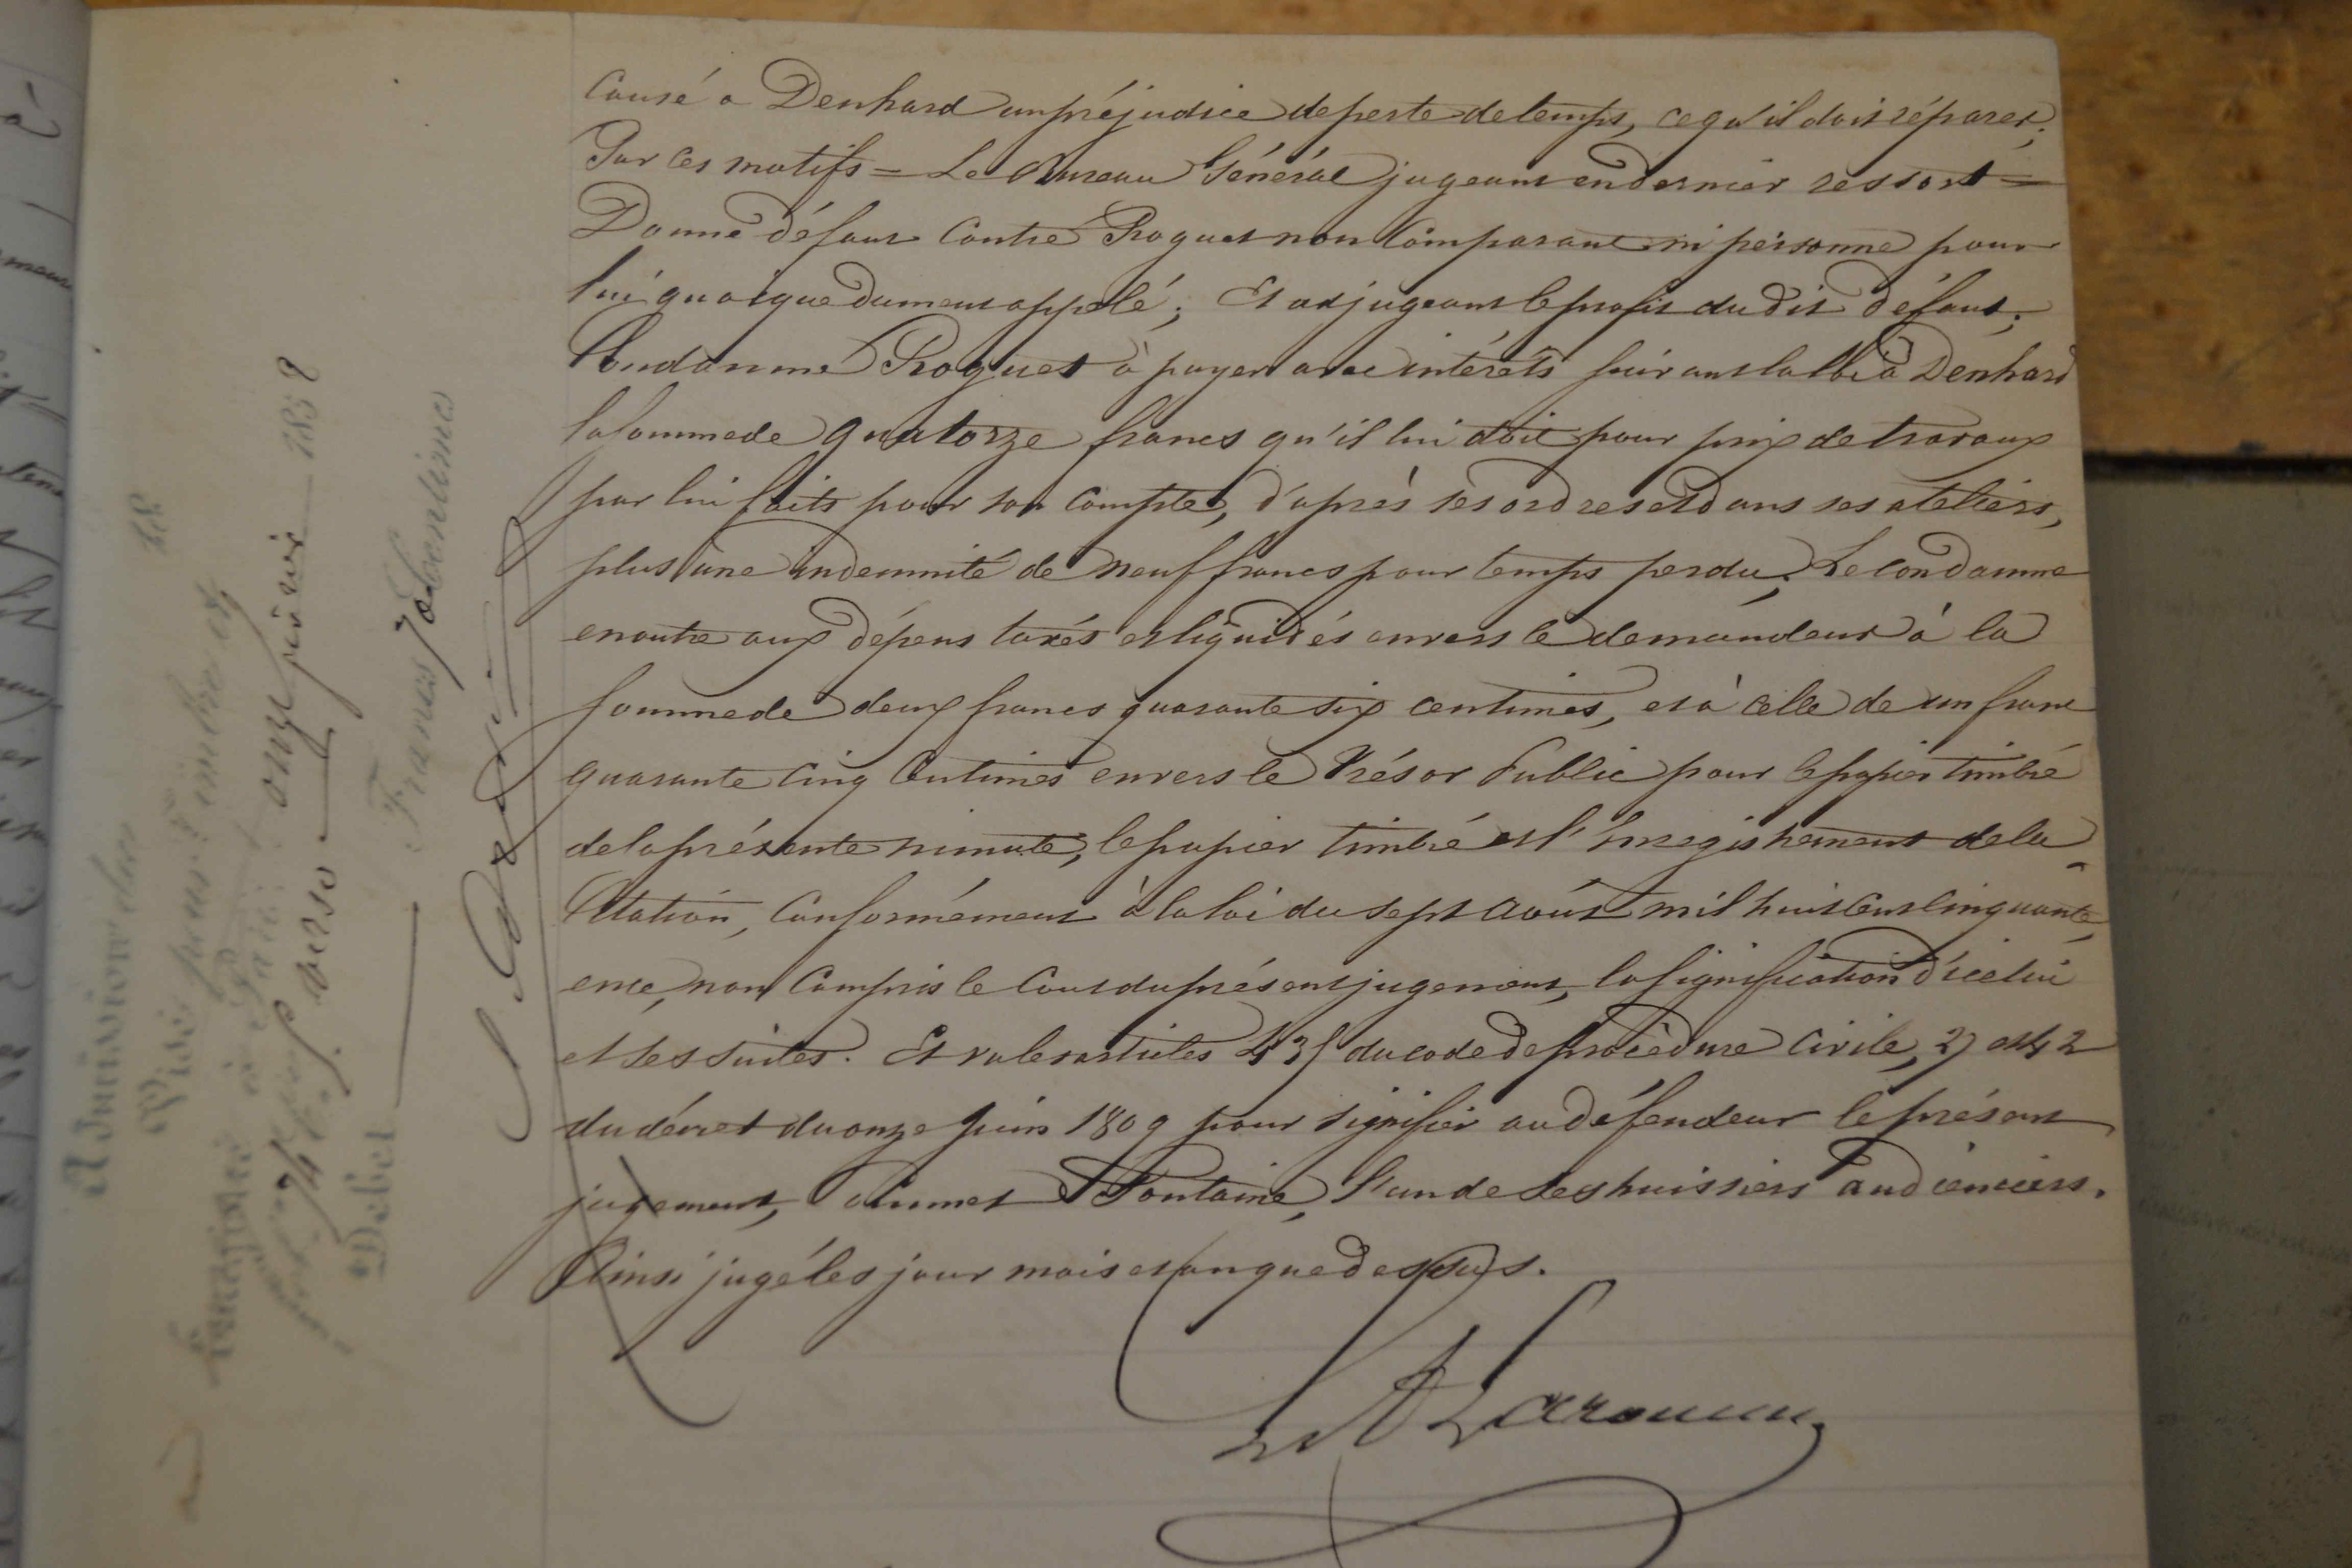 causé a Denhard un préjudice de perte de temps, ce qu'il doit réparer;
Par ces motifs = Le Bureau Général jugeant en dernier ressort =
Donne défaut contre Roguet non comparant ni personne pour
lui quoique dument appelé; Et adjugeant le profit du dit défaut;
Condamne Roguet à payer avec intérêts suivant la loi à Denhard
la somme de quatorze francs qu'il lui doit pour prix de travaux
par lui faits pour son compte, d'après ses ordres et dans ses ateliers,
plus une indemnité de neuf francs pour temps perdu; Le condamne
en outre aux dépens taxés et liquidés envers le demandeur à la
somme de deux francs quarante six centimes, et à celle de un franc
quarante cinq centimes envers le Trésor Public pour le papier timbré
de la présente minute, le papier timbré et l'enregistrement de la
Citation, conformément à la loi du sept août mil huit cent cinquante
en ce, non compris le cout du présent jugement, la signification d'icelui
et ses suites. Et vu les articles 435 du code de procédure civile, 27 et 42
du décret du onze juin 1809 pour signifier au défendeur le présent
jugement, commet Fontaine, l'un de ses huissiers audienciers.
Ainsi jugé les jour mois et an que dessus.
Visé pour timbre et
Enregistré à Paris
onze
185
verso
Debet
Francs
centimes